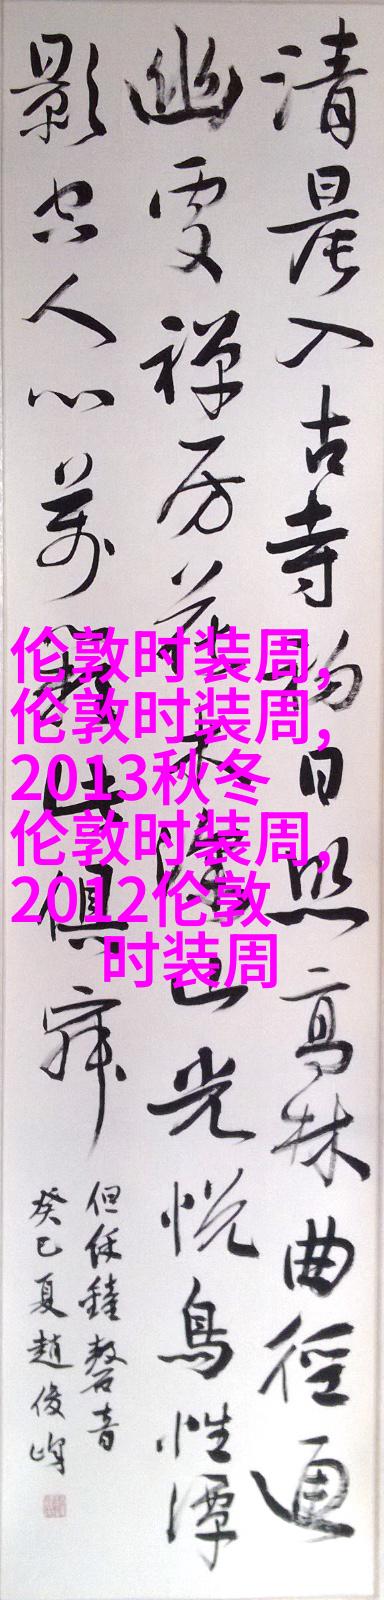 清晨入古寺初日照高林曲徑通
幽處禪房花木深山光悅鳥性潭
影空人心萬籟此俱寂
但餘鐘磬音
癸巳夏趙俊峰
伦敦时装周,
伦敦时装周,
2013秋冬
伦敦时装周,
2012伦敦
时装周